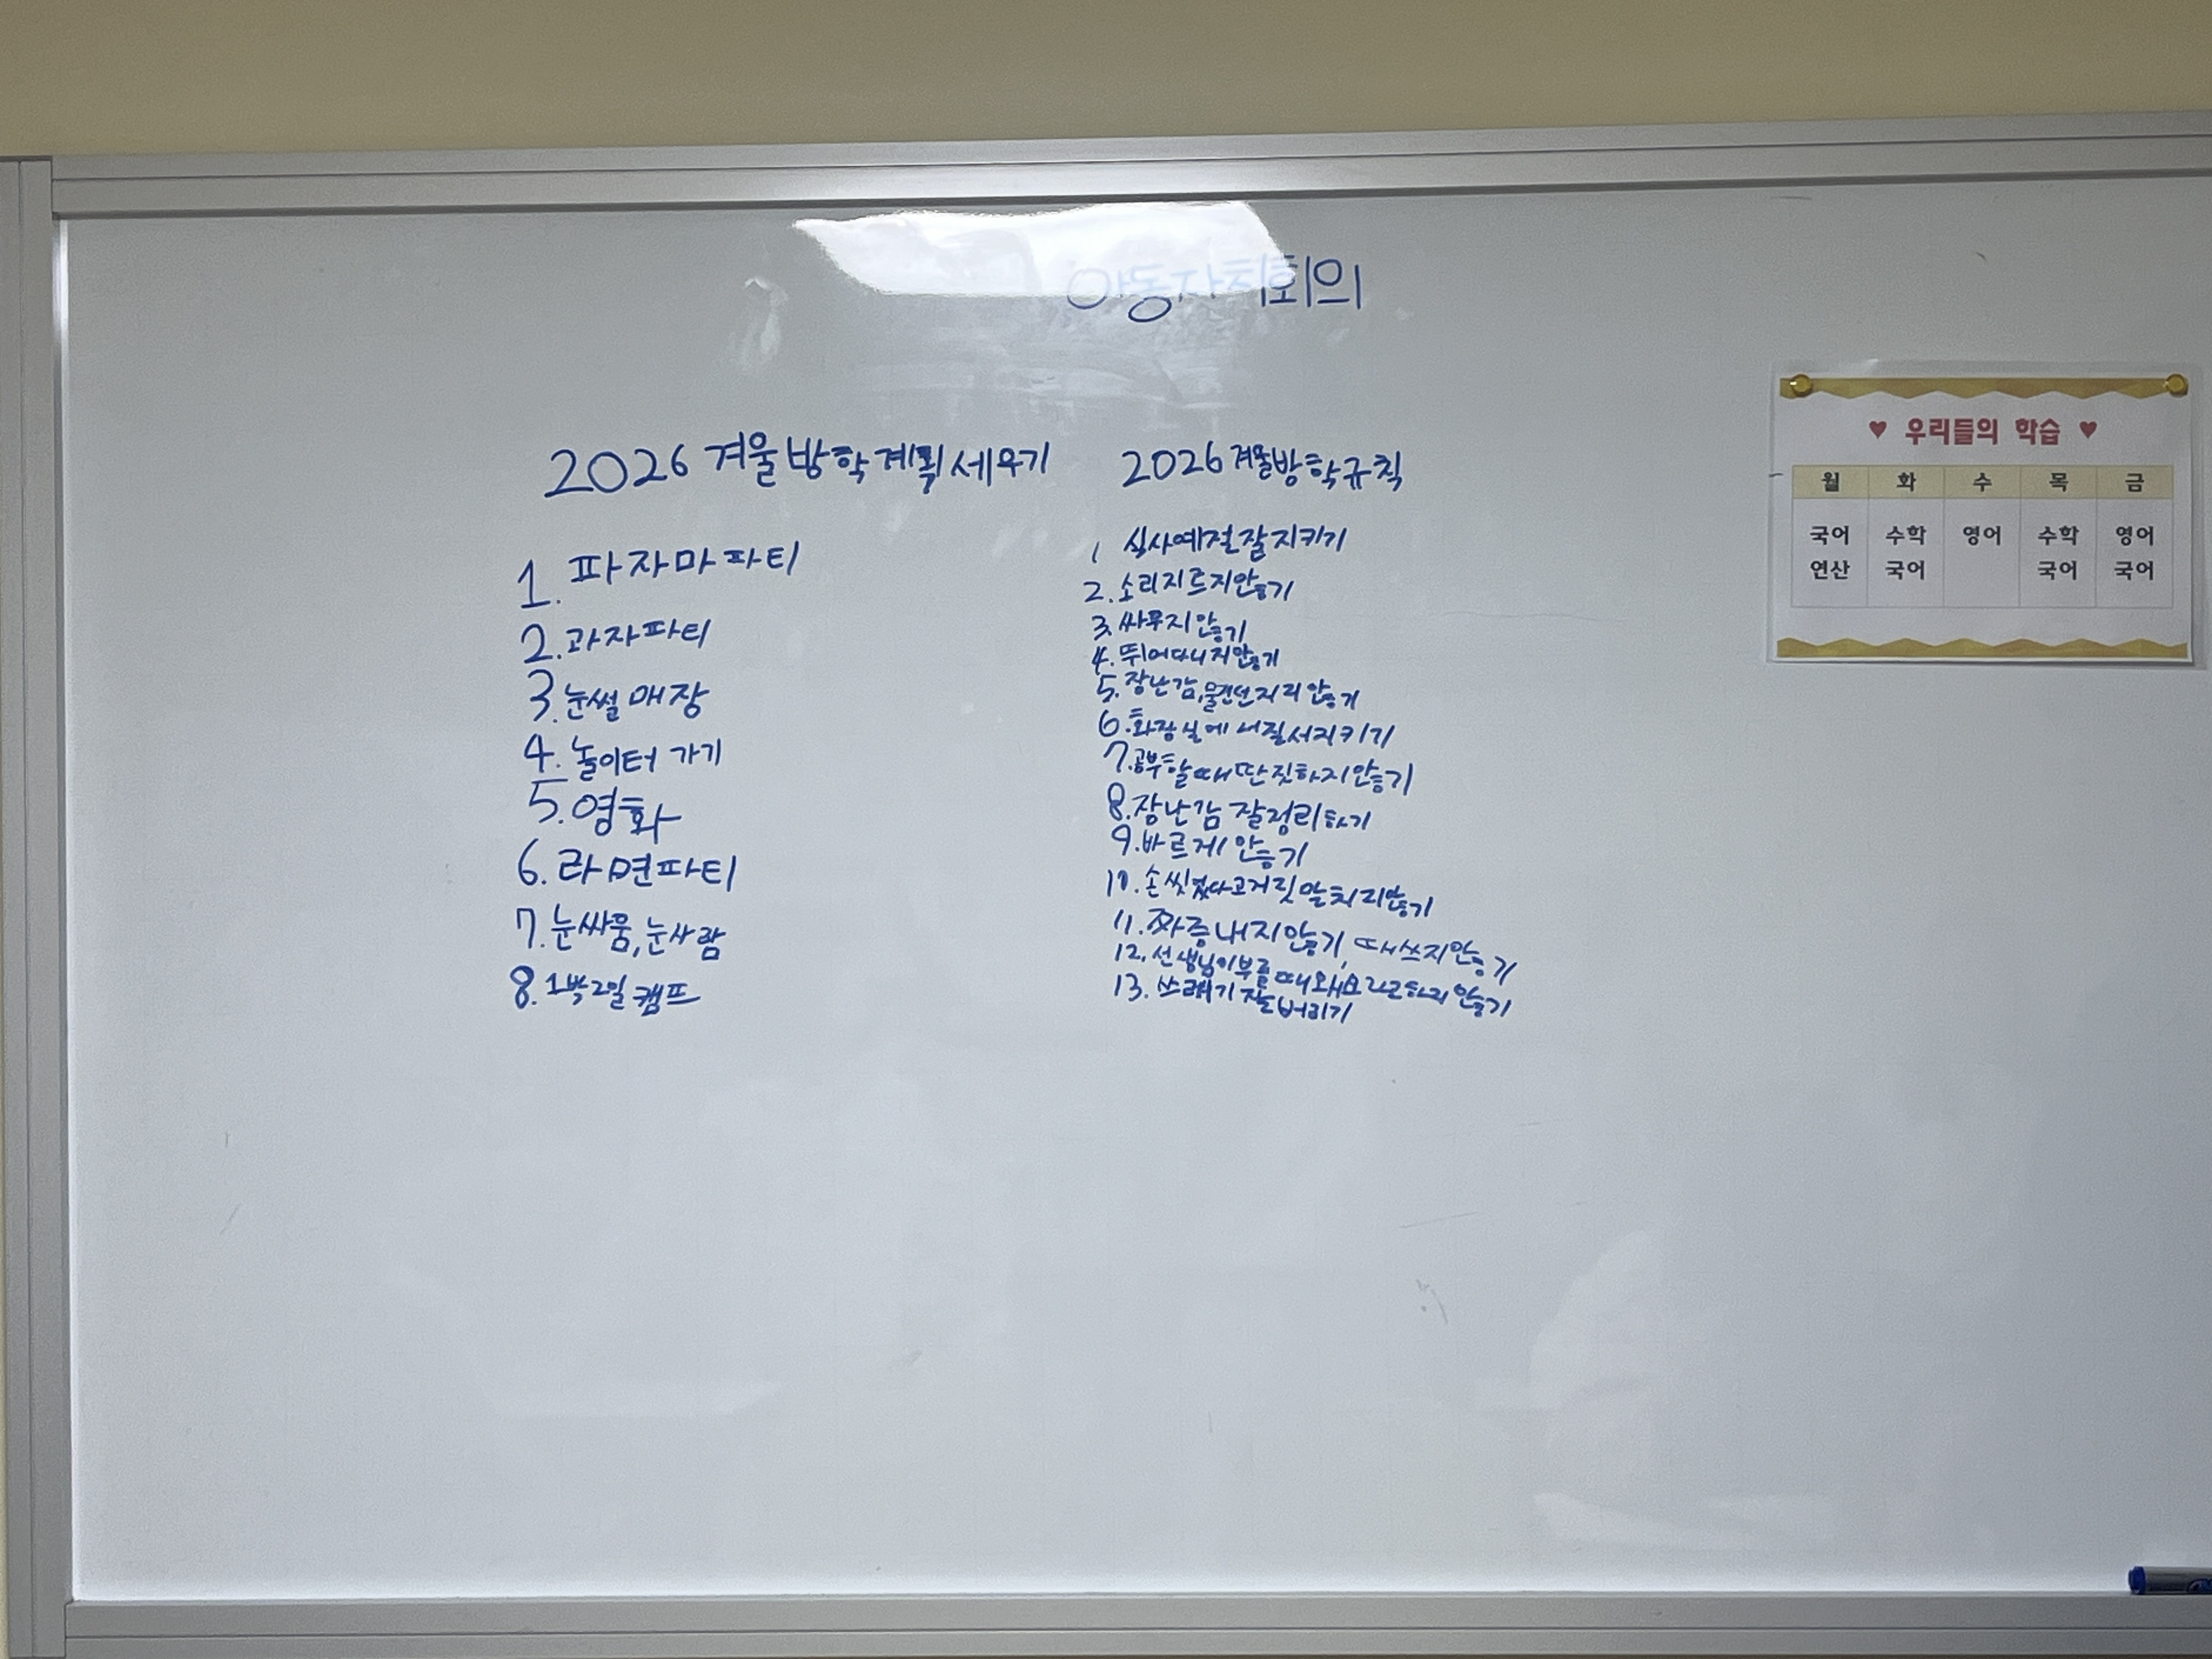 아동자치회의
2026 겨울방학계획세우기
1. 파자마파티
2. 과자파티
3. 눈썰매장
4. 놀이터 가기
5. 영화
6. 라면파티
7. 눈싸움, 눈사람
8. 1박2일 캠프
2026 겨울방학규칙
1 식사예절잘지키기
2. 소리지르지안흥기
3. 싸루지안흥기
4. 뛰어다니지안흥기
5. 장난감, 물건던지지안흥기
6. 화장실에서질서지키기
7. 공부할때딴짓하지안흥기
8. 장난감 잘정리하기
9. 바르게 안흥기
10. 손씻었다고거짓말치지안흥기
11. 짜증내지안흥기, 때쓰지안흥기
12. 선생님이부를때왜요라고하지안흥기
13. 쓰레기 잘버리기
♥ 우리들의 학습 ♥
월 화 수 목 금
국어 수학 영어 수학 영어
연산 국어 국어 국어